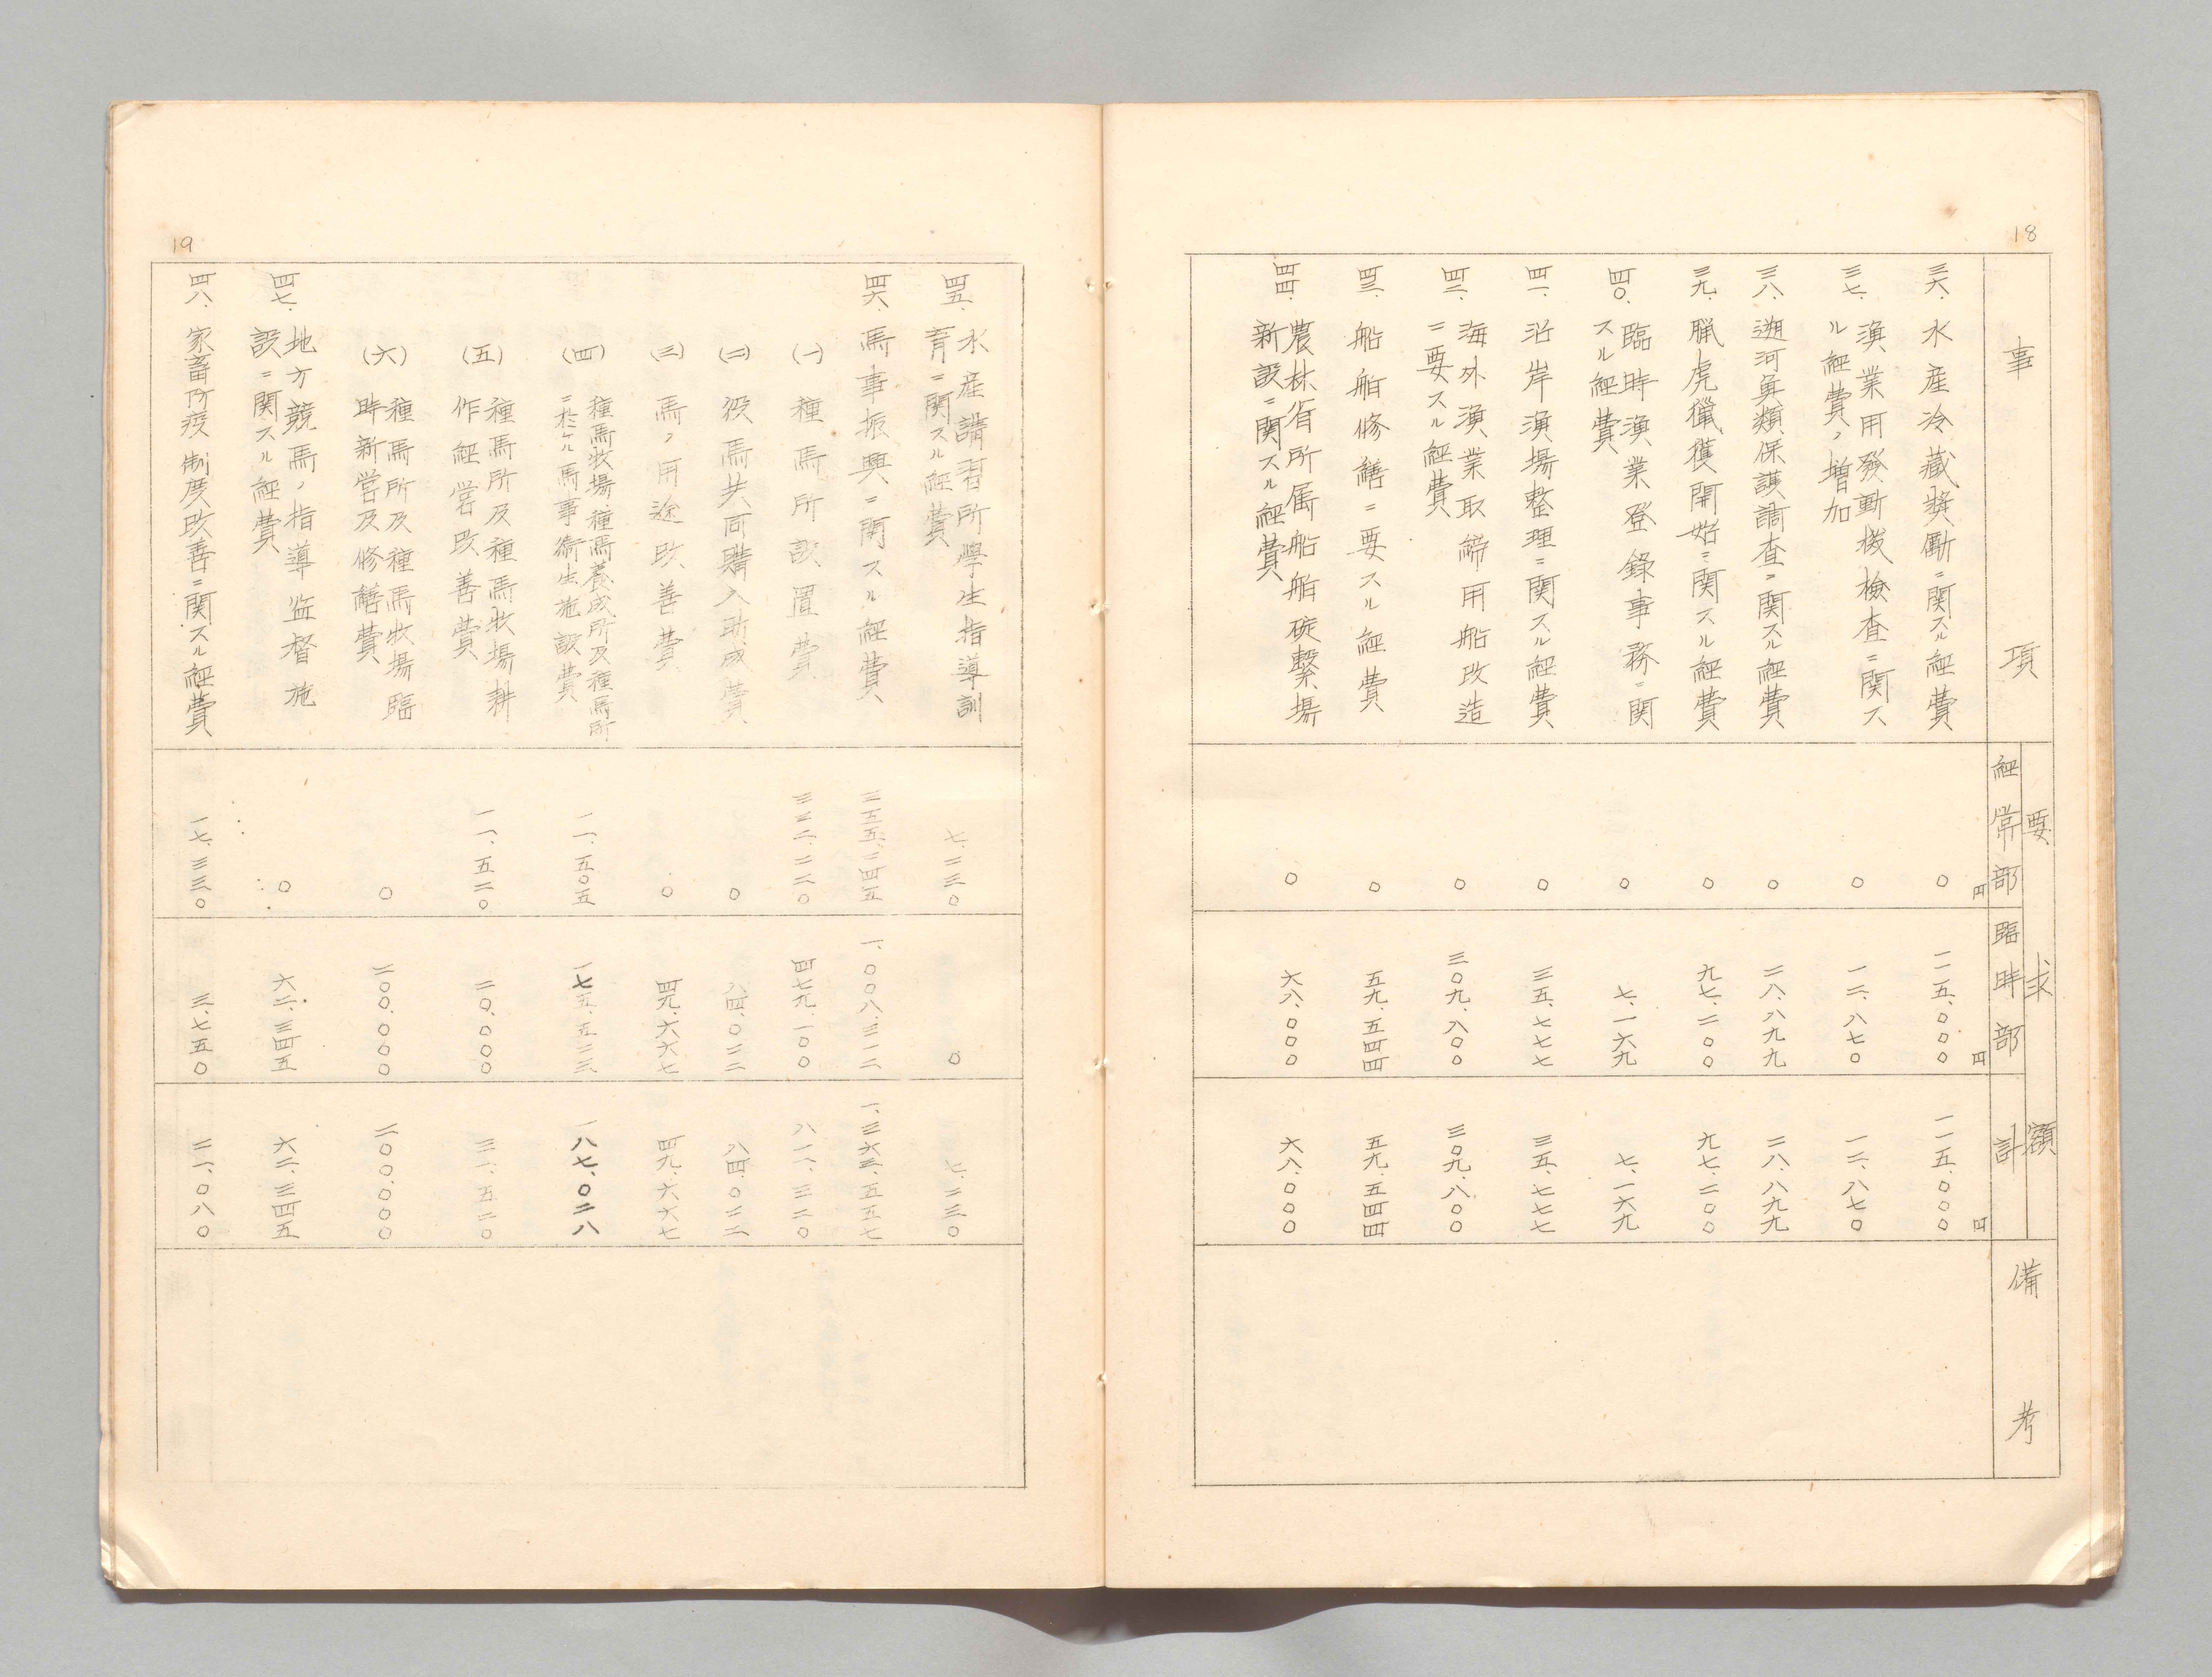 18
事項
要求額
経常部
臨時部
計
備考
円
円
円
三六、水産冷蔵奨励ニ関スル経費
〇
一一五、〇〇〇
一一五、〇〇〇
三七、漁業用発動機検査ニ関ス
ル経費ノ増加
〇
一二、八七〇
一二、八七〇
三八、遡河魚類保護調査ニ関スル経費
〇
二八、八九九
二八、八九九
三九、臘虎獵獲開始ニ関スル経費
〇
九七、二〇〇
九七、二〇〇
四〇、臨時漁業登録事務ニ関
スル経費
〇
七、一六九
七、一六九
四一、沿岸漁場整理ニ関スル経費
〇
三五、七七七
三五、七七七
四二、海外漁業取締用船改造
ニ要スル経費
〇
三〇九、八〇〇
三〇九、八〇〇
四三、船舶修繕ニ要スル経費
〇
五九、五四四
五九、五四四
四四、農林省所属船舶碇繋場
新設ニ関スル経費
〇
六八、〇〇〇
六八、〇〇〇
19
四五、水産講習所學生指導訓
育ニ関スル経費
七、二三〇
〇
七、二三〇
四六、馬事振興ニ関スル経費
三五五、二四五
一、〇〇八、三一二
一、三六三、五五七
(一)種馬所設置費
三三二、二二〇
四七九、一〇〇
八一一、三二〇
(二)役馬共同購入助成費
〇
八四、〇二二
八四、〇二二
(三)馬ノ用途改善費
〇
四九、六六七
四九、六六七
(四)種馬牧場、種馬養成所及種馬所
ニ於ケル馬事衛生施設費
一一、五〇五
一七五、五二三
一八七、〇二八
(五)種馬所及種馬牧場耕
作経営改善費
一一、五二〇
二〇、〇〇〇
三一、五二〇
(六)種馬所及種馬牧場臨
時新営及修繕費
〇
二〇〇、〇〇〇
二〇〇、〇〇〇
四七、地方競馬ノ指導監督施
設ニ関スル経費
〇
六二、三四五
六二、三四五
四八、家畜防疫制度改善ニ関スル経費
一七、三三〇
三、七五〇
二一、〇八〇